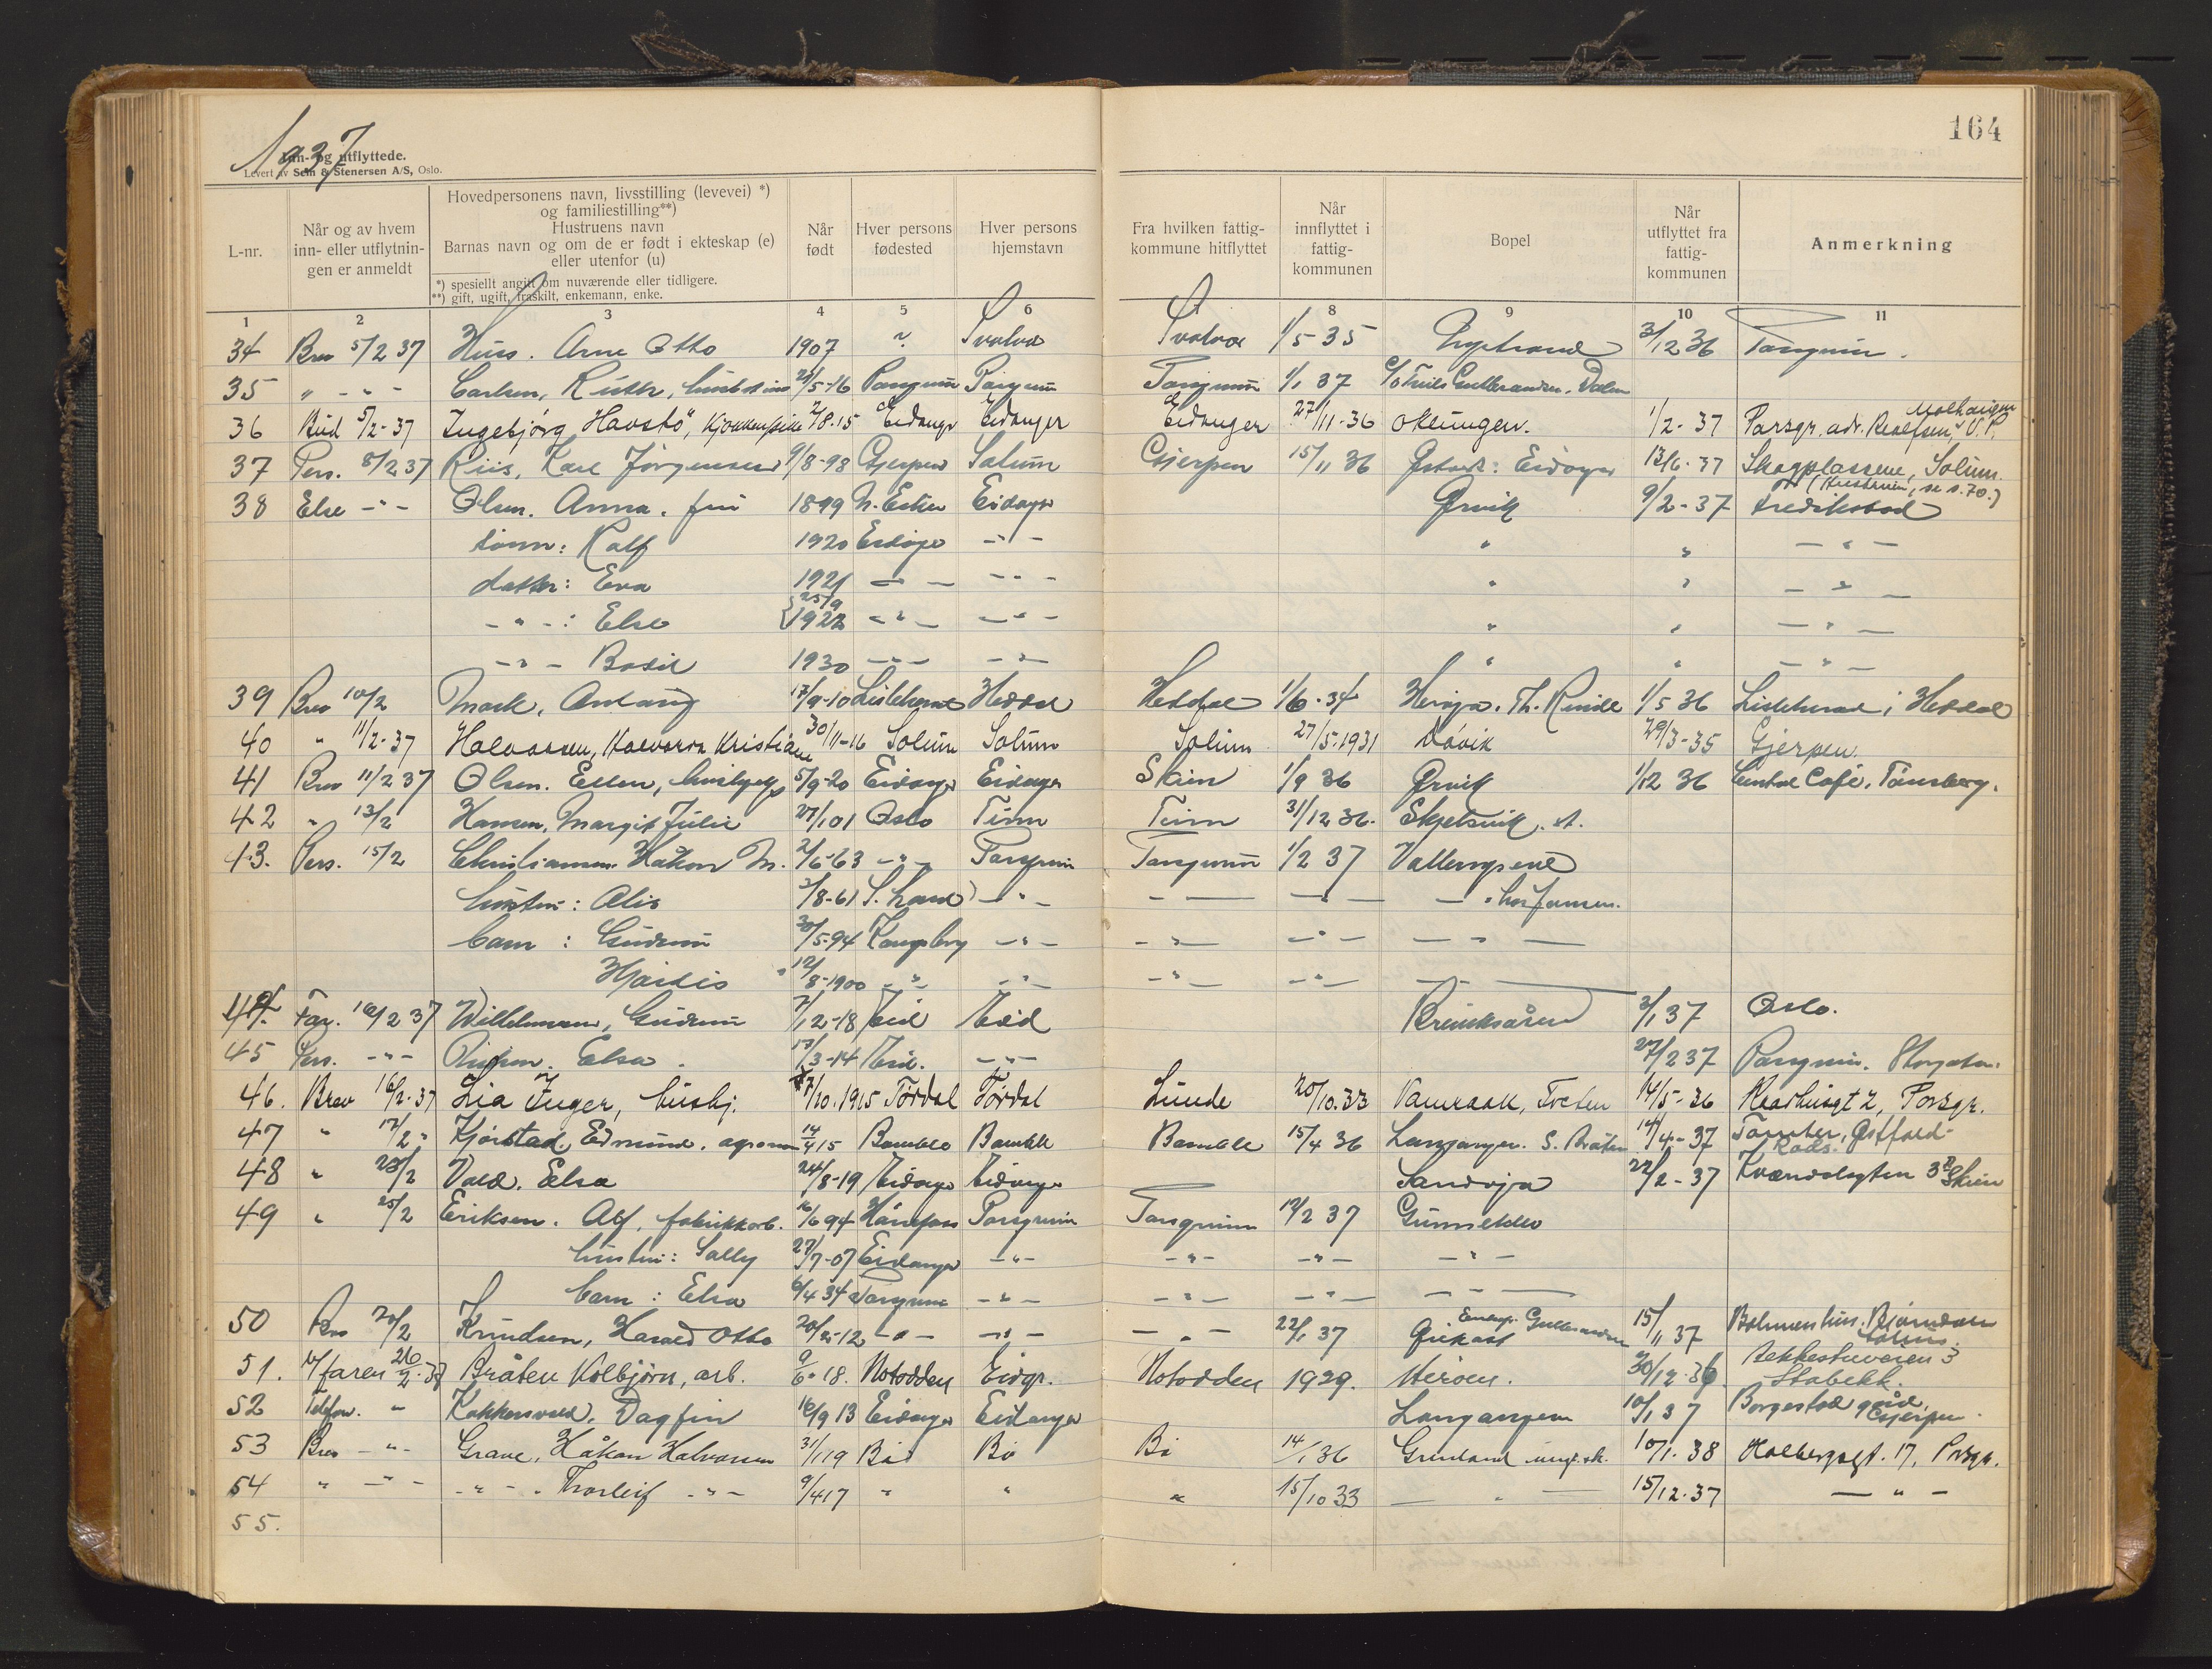 164
1937
Inn- og utflyttede.
Levert av Sem & Stenersen A/S, Oslo.
L-nr.
Når og av hvem inn- eller utflytnin-gen er anmeldt
Hovedpersonens navn, livsstilling (levevei) *)
og familiestilling**)
Hustruens navn
Barnas navn og om de er født i ekteskap (e)
eller utenfor (u)
*) spesiellt angitt om nuværende eller tidligere.
**) gift, ugift, fraskilt, enkemann, enke.
Når født
Hver persons fødested
Hver persons hjemstavn
Fra hvilken fattig-kommune hitflyttet
Når innflyttet i fattig-kommunen
Bopel
Når utflyttet fra fattig-kommunen
Anmerkning
1 2 3 4 5 6 8 9 10 11
34 Brev 5/2 37 Huss. Arne Otto 1907 ? Svolvær Svolvær 1/5 35 Nystrand 3/12 36 Porsgrunn.
35 " - " - Carlsen, Ruth, 5-16 Porsgrunn Porsgrunn Porsgrunn 1/1 37 c/o Gulbrandsen.
36 Bud 5/2-37 Ingebjørg Havstö, 2/8.15 Eidanger Eidanger Eidanger 27/11-36 1/2-37 Porsgr. adv.
37 Pers. 8/2 37 Riis, Karl Jörgensen 9/8-98 Gjerpen Solum Gjerpen 15/11 36 Eidanger 13/6-37 Skogplassene, Solum.
38 Else - " - Olsen. Anna. fru 1899 Eidanger Ørvik 9/2-37 Fredikstad (Hustruen, se s. 70.)
sönn: Ralf 1920 Eidanger - " - " " - " -
datter: Eva 1921 - " - - " - " " - " -
- " - : Else 25/9 1922 - " - - " - " " - " -
- " - Bodil 1930 - " - - " - " " - " -
39 Brev 10/2 Mork, 17/9-10 Lisleherad Heddal Heddal 1/6-34 Herøya. Th. Rinde 1/5 36 Lisleherad i Heddal
40 " 11/2-37 Halvorsen, Halvorda Kristiane 30/11-16 Solum Solum Solum 27/5.1931 Vövik 29/3-35 Gjerpen.
41 Brev 11/2 37 Olsen. Ellen, 5/9-20 Eidanger Eidanger Skien 1/9 36 Ørvik 1/12 36 Central Café. Tönsberg.
42 " 13/2 Hansen, Margit Julie 27/1 01 Oslo Tinn Tinn 31/12 36. Skjelsvik.
43. Pers. 15/2 Christiansen. Håkon M. 2/6-63 - " - Porsgrunn Porsgrunn 1/2 37 Vallermyrene
hustru: Alis 8-61 - " - - " - - " - Jansen.
barn : Gudrun 30/5-94 Kongsberg - " - - " - - " - - " -
Hjördis 12/8-1900 - " - - " - - " - - " -
44. Far. 16/2 37 Wilhelmsen, Gudrun 7/12-18 Eid Eid Breviksåsen 3/1 37 Oslo.
45 Pers. - " - Elsa 3-14 Eid. - " - 27/2 37 Porsgrunn. Storgaten.
46. Brev 16/2-37 Lia Inger, hushj. 7/10.1915 Tördal Tördal Lunde 20/10.33 Tveten 14/5-36 Raadhusgt 2, Porsgr.
47 " 17/2 " Kjörstad, Edmund. agronom 14/4 15 Bamble Bamble Bamble 15/4 36 Langangen. S. Bråten 14/4-37 Tomter, Østfold
48 " 23/2 Vold. Elsa 24/8-19 Eidanger Eidanger Sandøja 22/2-37 Skien
49 " 25/2 Eriksen. Alf, fabrikkarb. 16/6 94 Hönefoss Porsgrunn Porsgrunn 12/2 37 Gunneklev
hustru: Sally 27/7-07 Eidanger - " - - " - - " - - " -
barn : Elsa 6/4 34 Porsgrunn - " - - " - - " - - " -
50 Brev 20/2 Knudsen, Harald Otto 20/2-12 - " - - " - - " - 22/1 37 15/11 37 Bjørndalen Solum.
51. Lfaren 26/2-37 Bråten Kolbjörn, arb. 9/6-18. Notodden Eidgr. Notodden 1929. Heröen. 30/12-36 Bekkestuveien 3 Stabekk.
52 Telefon. " Kokkersvold, Dagfin 16/9 13 Eidanger Eidanger Langangen 10/1 37 Borgestad gård, Gjerpen.
53 Brev - " - Grave, Håkon Halvorsen 31/1 19 Bö Bö Bö 14/1 36 Grenland ungd.sk. 10/1.38 Holbergsgt. 17, Porsgr.
54 " - " - - " - Thorleif - " - 9/4 17 " " " 15/10 33 - " - 15/12.37 - " -
55.